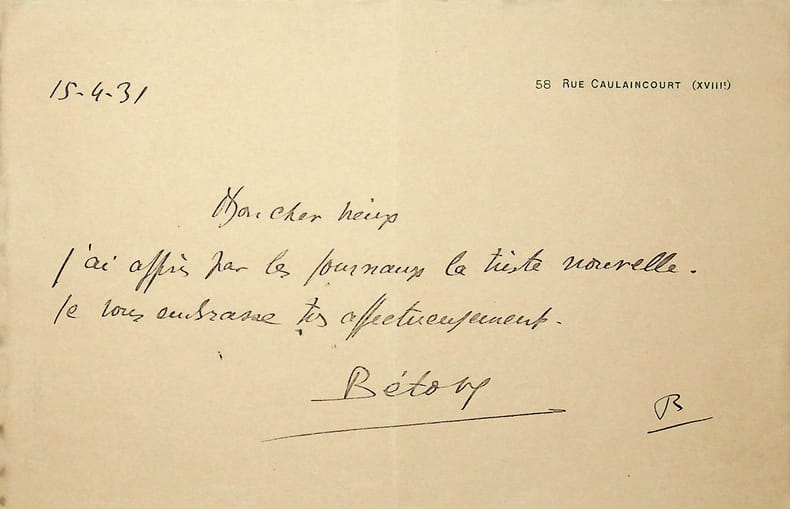 15-4-31
58 RUE CAULAINCOURT (XVIIIᵉ)
Mon cher vieux
J'ai appris par les journaux la triste nouvelle.
Je vous embrasse très affectueusement.
Bétove
B